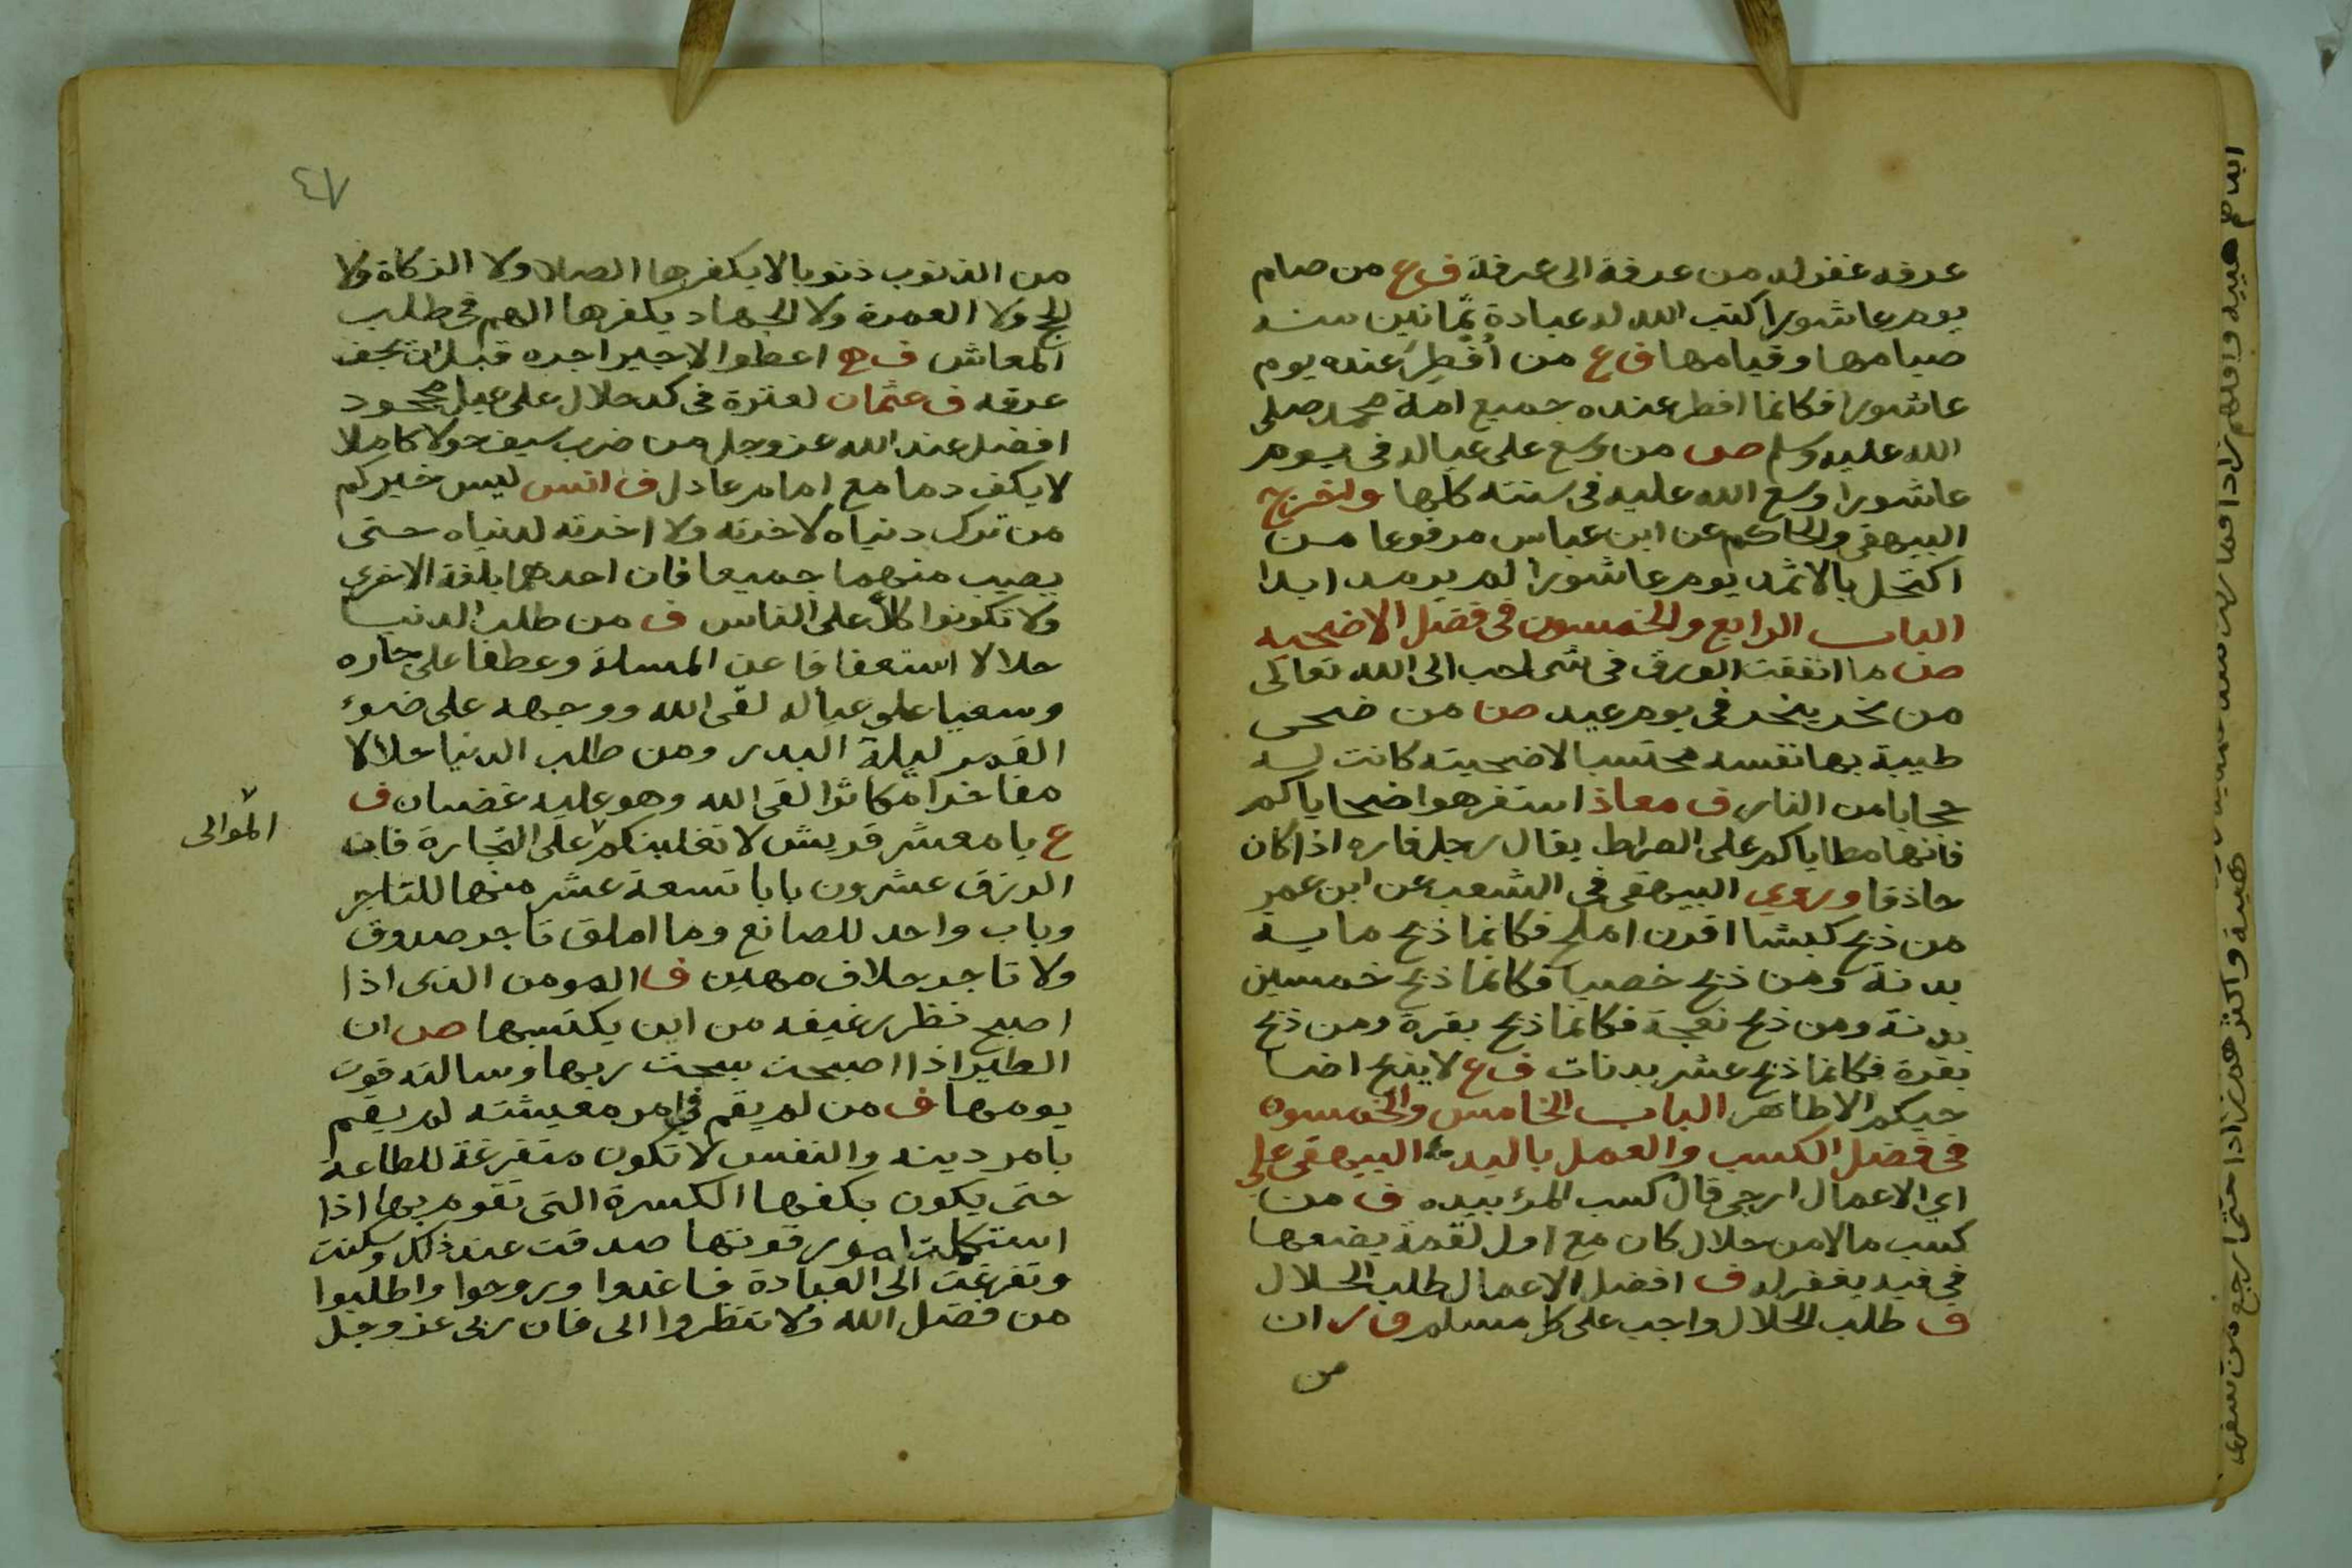 عرفه غفر له من عرفة الى عرفة ف ع من صام
يوم عاشورا كتب الله له عبادة ثمانين سنه
صيامها وقيامها ف ع من أفطِر عنده يوم
عاشورا فكانما افطر عنده جميع امة محمد صلى
الله عليه وسلم ص من وسع على عياله فى يوم
عاشورا وسع الله عليه فى سنته كلها واخرج
البيهقى والحاكم عن ابن عباس مرفوعا من
اكتحل بالاثمد يوم عاشورا لم يرمد ابدا
الباب الرابع والخمسون فى فضل الاضحيه
ص ما انفقت الورق فى شى احب الى الله تعالى
من نحر ينحر فى يوم عيد ص من ضحى
طيبة بها نفسه محتسبا لاضحيته كانت له
حجابا من النار ف معاذ استفرهوا ضحاياكم
فانها مطاياكم على الصراط يقال رجل فاره اذا كان
حاذقا وروي البيهقى فى الشعب عن ابن عمر
من ذبح كبشا اقرن املح فكانما ذبح مايه
بدنة ومن ذبح خصيا فكانما ذبح خمسين
بدنة ومن ذبح نعجة فكانما ذبح بقرة ومن ذبح
بقرة فكانما ذبح عشر بدنات ف ع لا يذبح اضا
حيكم الا طاهر الباب الخامس والخمسون
فى فضل الكسب والعمل باليد البيهقى على
اي الاعمال ارجى قال كسب المرء بيده ف من
كسب مالا من حلال كان مع اول لقمة يضعها
في فيه يغفر له ف افضل الاعمال طلب الحلال
ف طلب الحلال واجب على كل مسلم ف ر ان
من
٤٧
من الذنوب ذنوبا لا يكفرها الصلا ولا الزكاة ولا
الحج ولا العمرة ولا الجهاد يكفرها الهم فى طلب
المعاش ف اعطوا الاجير اجره قبل ان يجف
عرقه ف عثمان لعثرة فى كد حلال على عيل محجود
افضل عند الله عز وجل من ضرب سيف حولا كاملا
لا يكف دما مع امام عادل ف انس ليس خيركم
من ترك دنياه لاخرته ولا اخرته لدنياه حتى
يصيب منهما جميعا فان احدهما بلغة الاخري
ولا تكونوا كلاً على الناس ف من طلب الدنيا
حلالا استعفافا عن المسلة وعطفا على جاره
وسعيا على عياله لقى الله ووجهه على ضوء
القمر ليلة البدر ومن طلب الدنيا حلالا
مفاخرا مكاثرا لقى الله وهو عليه غضبان ف
ع يا معشر قريش لا تغلبنكم على التجارة فان
الموالى
الرزق عشرون بابا تسعة عشر منها للتاجر
وباب واحد للصانع وما املق تاجر صدوق
ولا تاجر حلاف مهين ف المومن الذى اذا
اصبح نظر رغيفه من اين يكتسبها ص ان
الطير اذا اصبحت سبحت ربها وسالته قوت
يومها ف من لم يقم في امر معيشته لم يقم
بامر دينه والنفس لا تكون متفرغة للطاعة
حتى يكون بكفها الكسرة التى تقوم بها اذا
استكملت امور قوتها صدقت عند ذلك وسكنت
وتفرغت الى العبادة فاغدوا وروحوا واطلبوا
من فضل الله ولا تنظروا الى فان ربى عز وجل